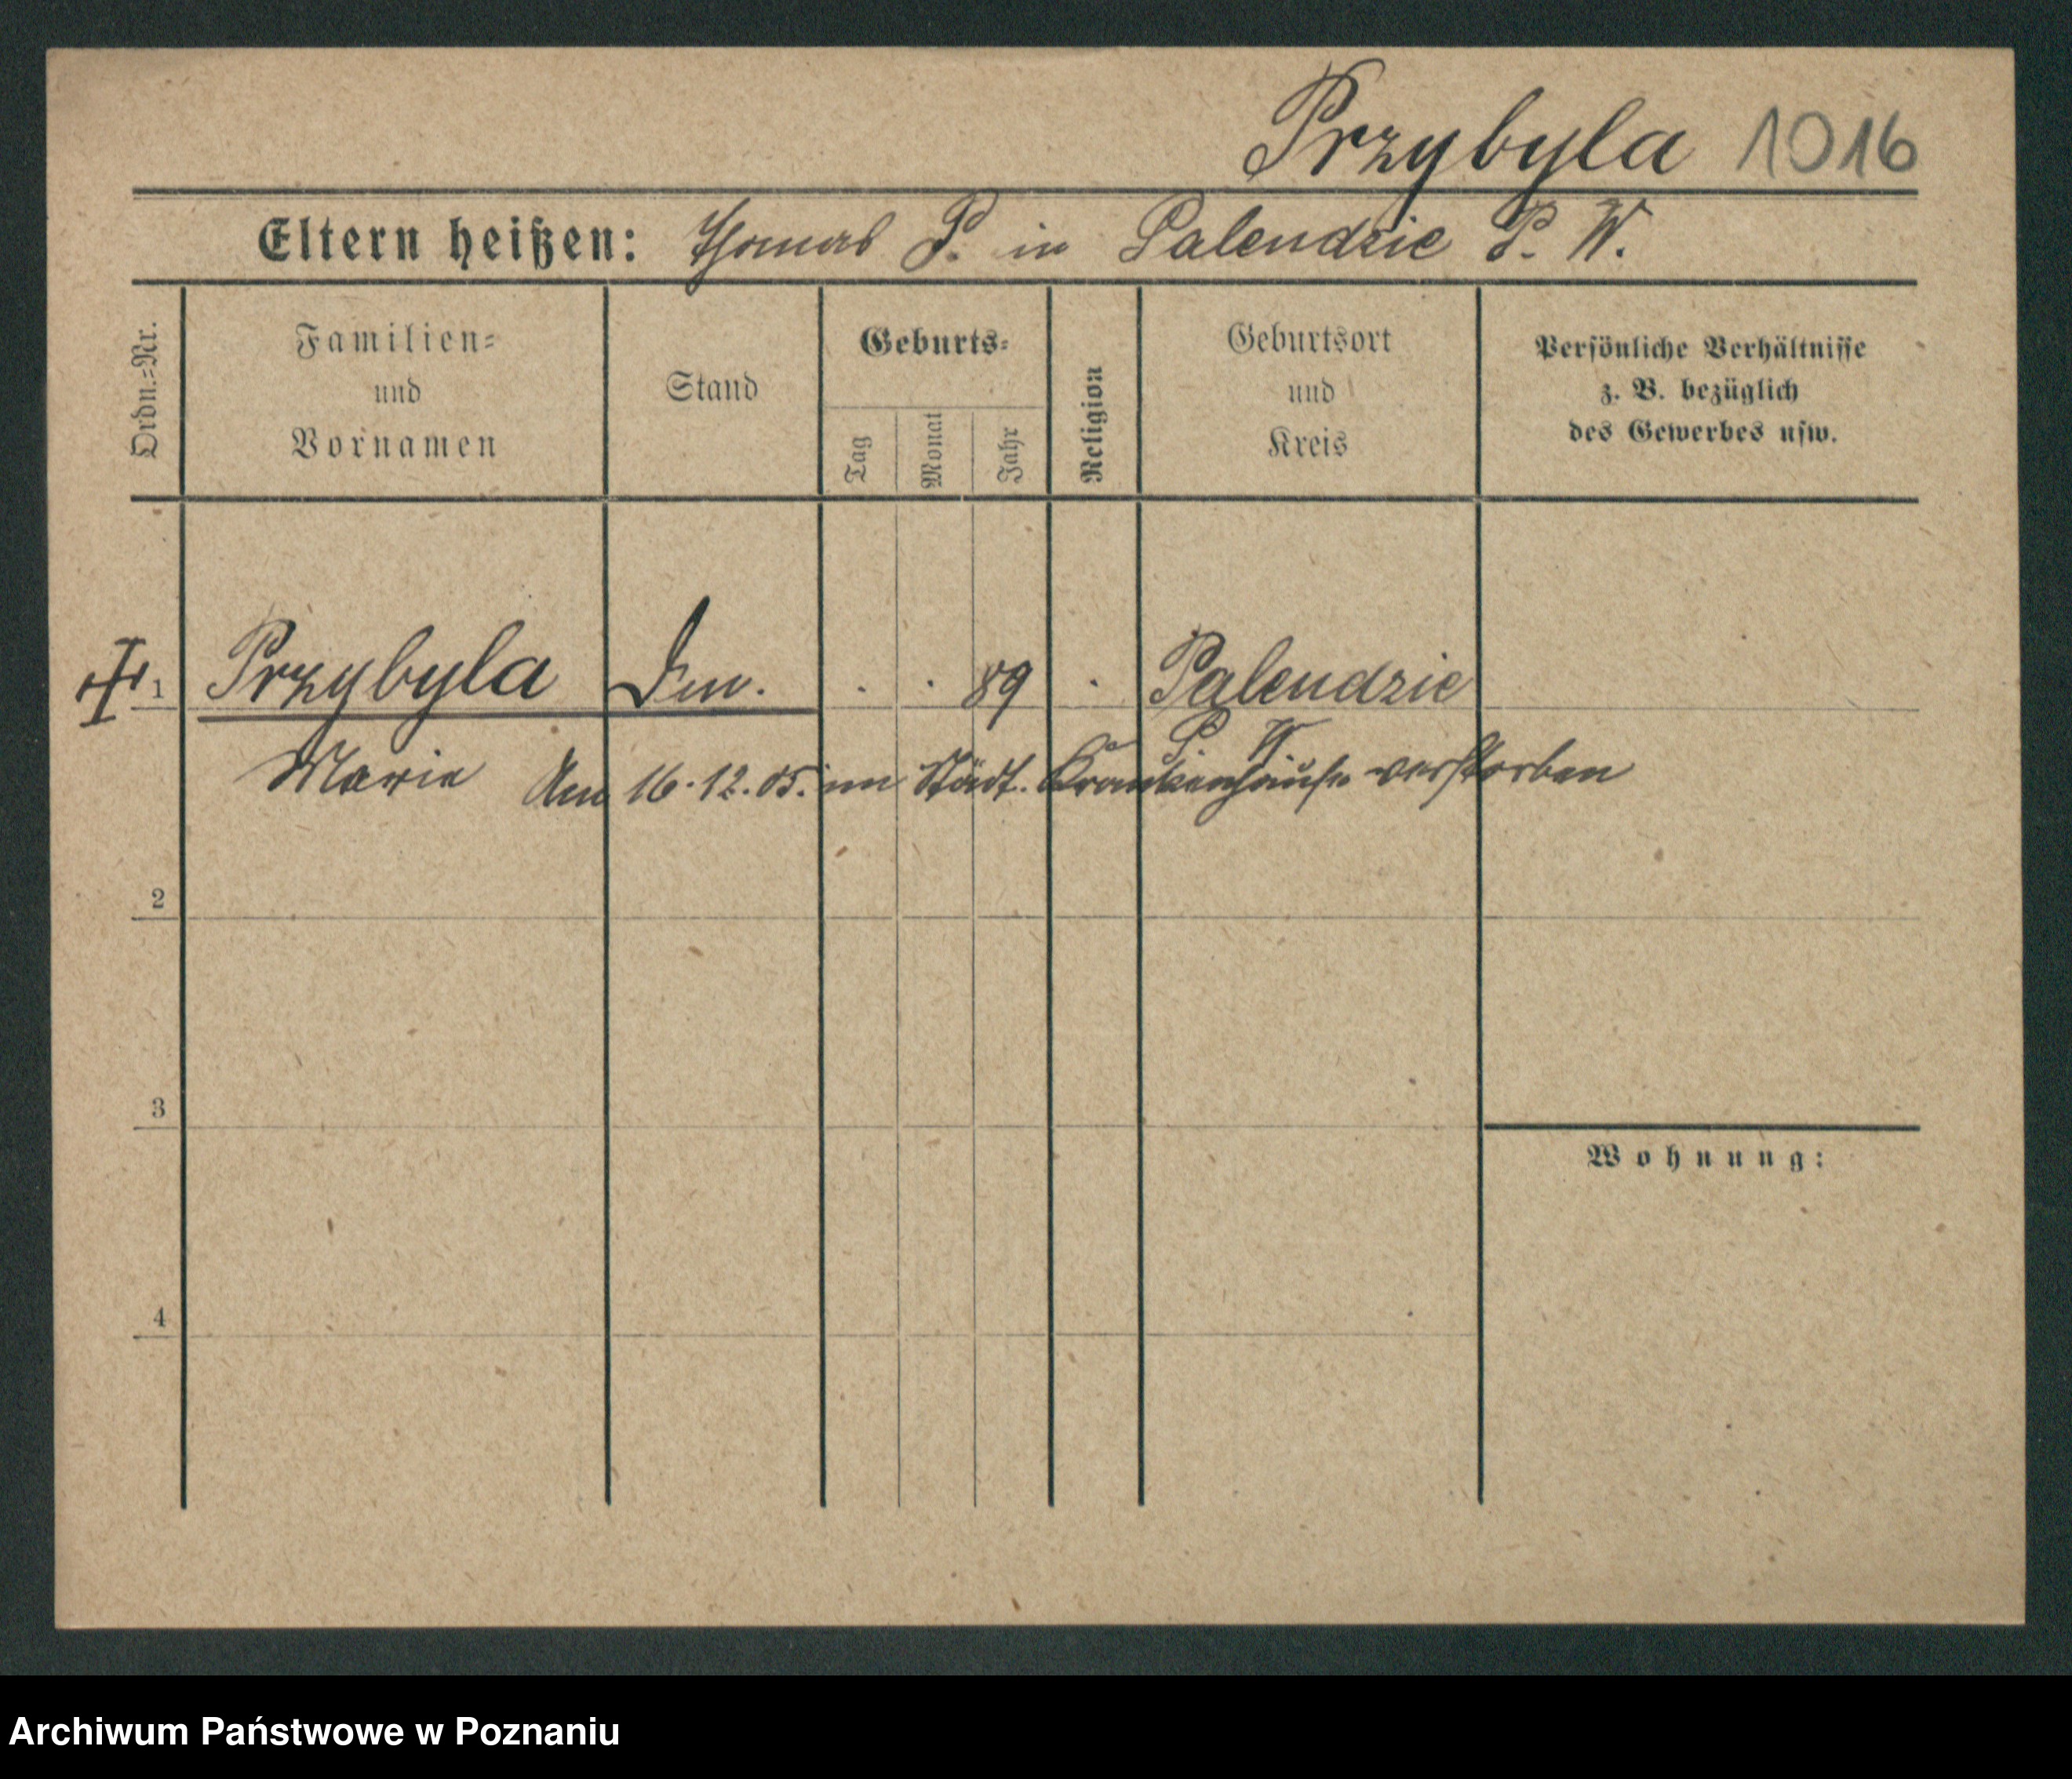 Przybyla 1016
Eltern heißen: Thomas P. in Palendzie P. W.
Ordn.=Nr.
Familien=
und
Vornamen
Stand
Geburts=
Tag
Monat
Jahr
Religion
Geburtsort
und
Kreis
Persönliche Verhältnisse
z. B. bezüglich
des Gewerbes usw.
1 Przybyla . . 89 . Palendzie
P. W.
Marie Am 16.12.05. im Städt. Krankenhause verstorben
2
3
Wohnung:
4
Archiwum Państwowe w Poznaniu